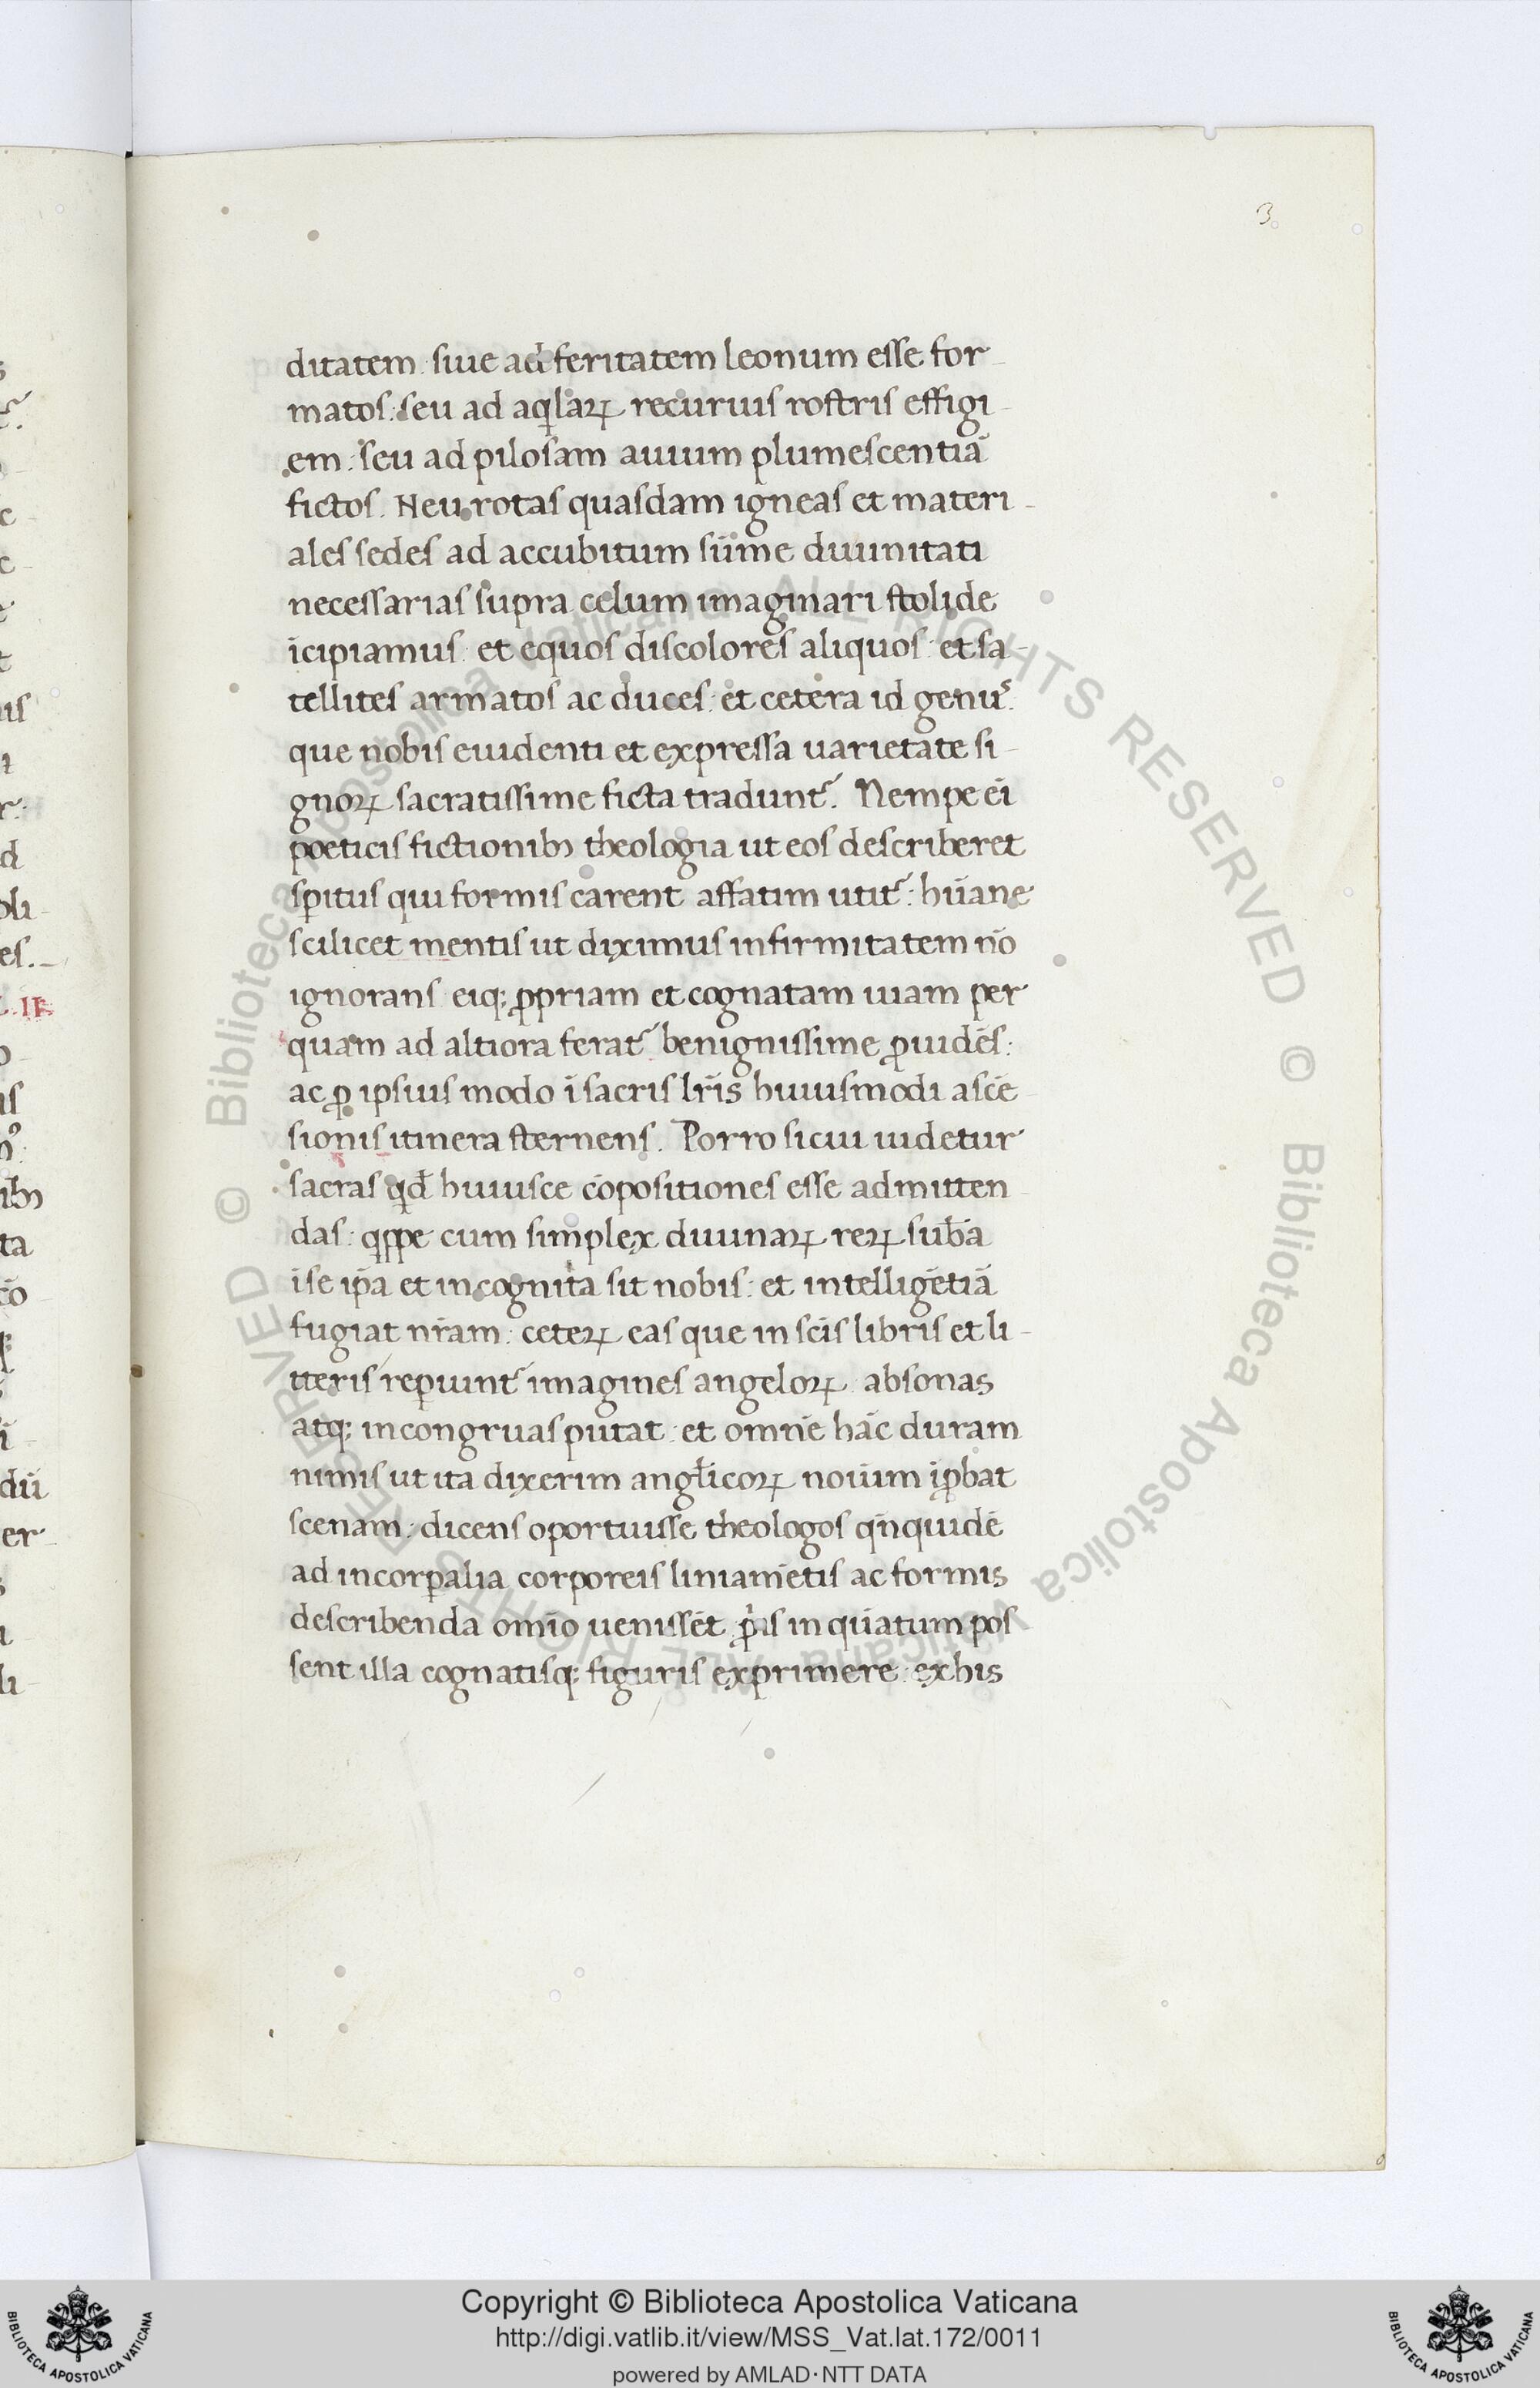 3
ditatem. siue ad feritatem leonum esse for-
matos: seu ad aqͥlaꝝ recuruis rostris effigi-
em: seu ad pilosam auium plumescentiā
fictos. Neu rotas quasdam igneas et materi-
ales sedes ad accubitum sūme diuinitati
necessarias supra celum imaginari stolide
īcipiamus: et equos discolores aliquos: et sa-
tellites armatos ac duces: et cetera id genus.
que nobis euidenti et expressa uarietate si-
gnoꝝ sacratissime ficta tradunt᷑. Nempe ēi
poeticis fictionibꝫ theologia ut eos describeret
sp̄itus qui formis carent affatim utit᷑: hūane
scilicet mentis ut diximus infirmitatem nō
ignorans eiqꝫ ꝓpriam et cognatam uiam per
quam ad altiora ferat᷑ benignissime ꝓuidēs:
ac ꝓ ipsius modo ī sacris lr̄is huiusmodi ascē
sionis itinera sternens. Porro si cui uidetur
sacras qͥd̄ huiusce cōpositiones esse admitten-
das: qͥppe cum simplex diuinaꝝ reꝝ sub̄a
ī se ip̄a et incognita sit nobis: et intelligētiā
fugiat nr̄am: ceteꝝ eas que in sc̄is libris et li-
tteris rep̄iunt᷑ imagines angeloꝝ absonas
atqꝫ incongruas putat: et omnē hāc duram
nimis ut ita dixerim angl̄icoꝝ nouim īꝓbat
scenam: dicens oportuisse theologos qn̄quidē
ad incorꝑalia corporeis liniamētis ac formis
describenda omīo uenissēt ꝓͥis in qūatum pos
sent illa cognatisqꝫ figuris exprimere: ex his
Copyright © Biblioteca Apostolica Vaticana
http://digi.vatlib.it/view/MSS_Vat.lat.172/0011
powered by AMLAD·NTT DATA